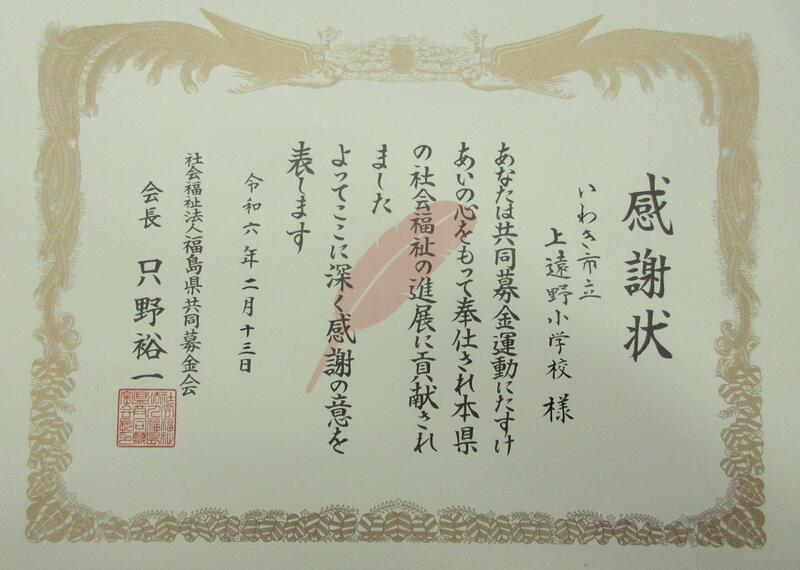 感謝状
いわき市立
上遠野小学校 様
あなたは共同募金運動にたすけ
あいの心をもって奉仕され本県
の社会福祉の進展に貢献され
ました
よってここに深く感謝の意を
表します
令和六年二月十三日
社会福祉法人福島県共同募金会
会長 只野裕一